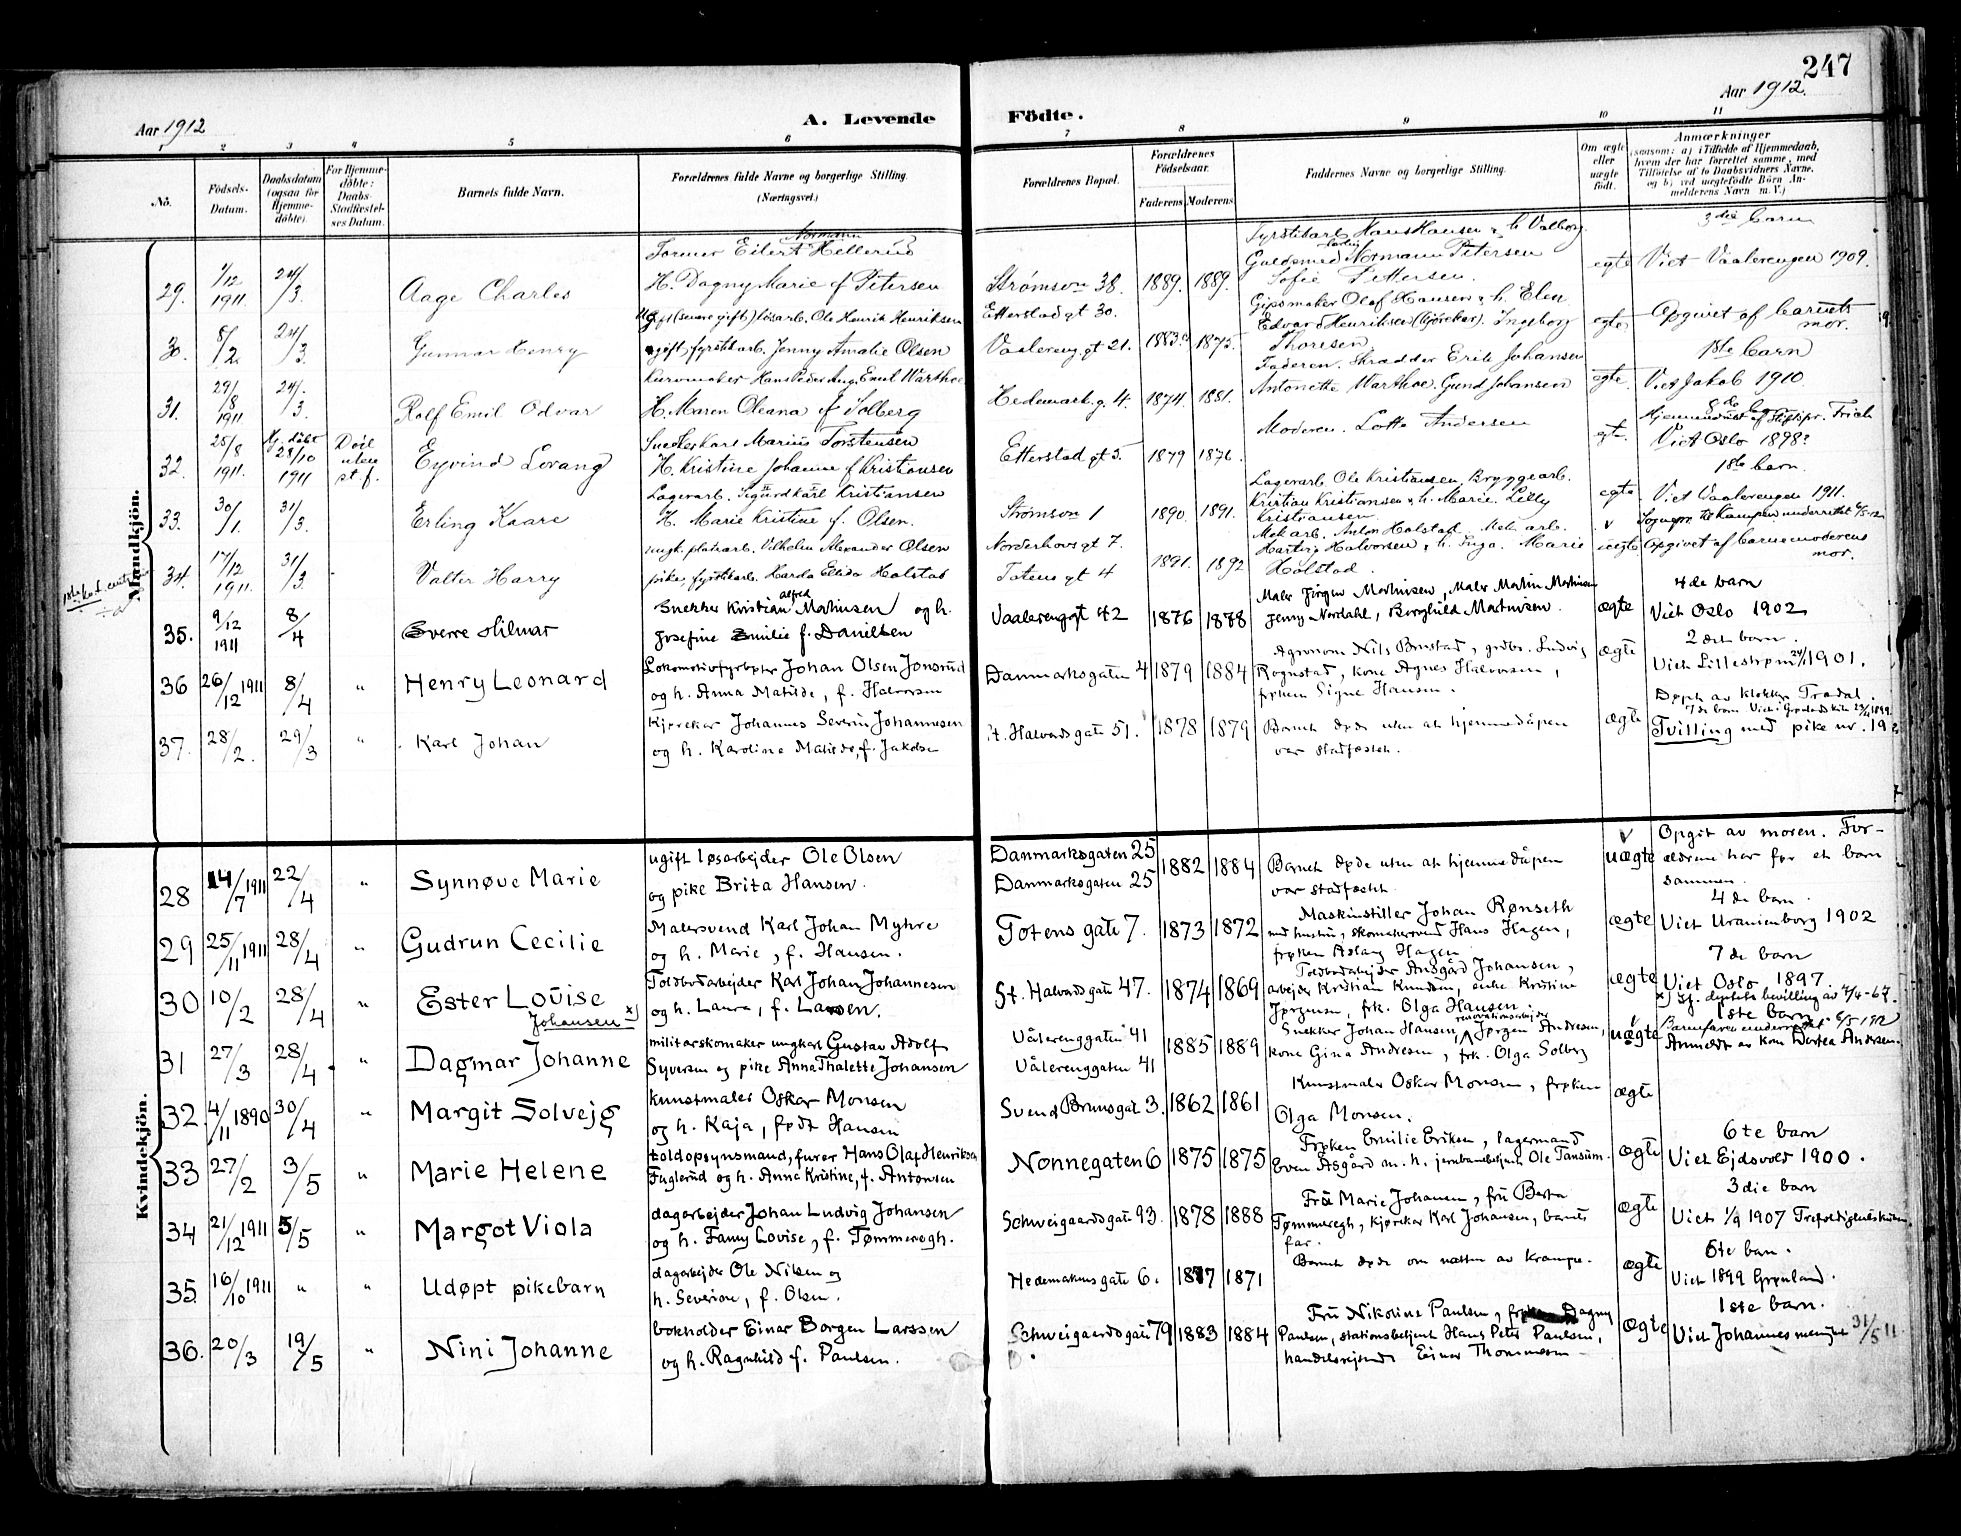 247
Aar 1912
A. Levende Födte.
Aar 1912.
1 2 3 4 5 6 7 8 9 10 11
No.
Födsels-Datum.
Daabsdatum (ogsaa for Hjemme-döbte).
For Hjemme-döbte: Daabs-Stadfæstel-ses Datum.
Barnets fulde Navn.
Forældrenes fulde Navne og borgerlige Stilling. (Næringsvei.)
Forældrenes Bopæl.
Forældrenes Födselsaar.
Faderens Moderens
Faddernes Navne og borgerlige Stilling.
Om ægte eller uægte födt.
Anmærkninger
(saasom: a) i Tilfælde af Hjemmedaab, hvem der har forrettet samme, med Tilföielse af to Daabsvidners Navne. og b) ved uægtefödte Börn An-melderens Navn m. V.)
Mandkjön.
29. 1/12 1911. 24/3. Aage Charles
Former Eilert Normann Hellerud
H. Dagny Marie f Petersen
Strömsvn 38. 1889. 1889.
Fyrstikarb. Hans Hansen & h. Valborg
Guldsmed Normann Petersen
Sofie Pettersen.
egte
3die barn
Viet Vaalerengen 1909.
30. 8/2. 24/3. Gunnar Henry
Ugift (senere gift) løsarb. Ole Henrik Henriksen
ugift fyrstikarb. Jenny Amalie Olsen
Etterstad gt 30.
Vaalereng. gt 21. 1883. 1875.
Gipsmaker Olaf Hansen & h. Elen
Edvard Henriksen (kjörekar). Ingeborg Thoresen.
Opgivet af barnets mor.
31. 29/8 1911 24/3. Rolf Emil Odvar
Kurvmaker Hans Peder Aug. Emil Warthoe
H. Maren Oleana f Solberg
Hedemark. g. 4. 1874. 1881.
Faderen. Skrædder Erik Johansen
Antonette Warthoe. Gund Johansen
egte.
1ste barn
Viet Jakob 1910.
32. 25/8 1911. Hj. döbt 28/10 1911 Död uten st. f. Eyvind Lorang
Snedkerkarl Marius Torstensen
H. Kristine Johanne f Kristiansen
Etterstad gt 5. 1879 1876.
Moderen. Lotte Andersen
egt.
8de barn
Viet Oslo 1898?
33. 30/1. 31/3. Erling Kaare
Lagerarb. Sigurd Karl Kristiansen
H. Marie Kristine f. Olsen.
Strömsvn 1 1890. 1891.
Lagerarb. Ole Kristiansen. Bryggearb.
Kristian Kristiansen & h. Marie. Lilly
Kristiansen
egte
1ste barn.
Viet Vaalerengen 1911.
34. 17/12 1911. 31/3. Valter Harry
ungk. platearb. Vilhelm Alexander Olsen
pike, fyrstikarb. Harda Elida Holstad
Norderhovsgt 7.
Totens gt 4 1891. 1892
Mek arb. Anton Holstad. Mek arb.
Hartvig Halvorsen & h. Inga. Marie
Holstad.
uegte
Opgivet af barnemoderens mor.
35. 9/12 1911 8/4 Sverre Hilmar
Snekker Kristian Alfred Martinsen og h.
Josefine Emilie f. Danielsen
Vaalerengagt 42 1876 1878
Maler Jørgen Martinsen, Maler Martin Martinsen
Jenny Nordahl, Borghild Martinsen.
ægte
4de barn
Viet Oslo 1902
36 26/12 1911 8/4 " Henry Leonard
Lokomotivfyrbøter Johan Olsen Jonsrud
og h. Anna Matilde, f. Halvorsen
Danmarksgaten 4 1879 1884
Agronom Nils Bunstad, grdbr. Ludvig
Rognstad, kone Agnes Halvorsen,
frøken Signe Hansen.
ægte
2det barn.
Viet Lillestrøm 1901.
37. 28/2. 29/3 " Karl Johan
Kjørekar Johannes Severin Johannesen
og h. Karoline Matilde, f. Jakobsen
St. Halvardsgate 51. 1878 1879
Barnet døde uten at hjemmedåpen
var stadfæstet.
ægte
Døpt av klokker Tradal.
7de barn Viet i Grønlands kirke 1899
Tvilling med pike nr. 19
Kvindekjön.
28 14/7 1911 22/4 " Synnøve Marie
ugift løsarbejder Ole Olsen
og pike Brita Hansen.
Danmarksgaten 25
Danmarksgaten 25
1882 1884
Barnet døde uten at hjemmedåpen
var stadfæstet.
uægte
Opgit av moren. For-
ældrene har før et barn
sammen.
29 25/11 1911 28/4 " Gudrun Cecilie
Malersvend Karl Johan Myhre
og h. Marie, f. Hansen.
Totens gate 7. 1873 1872
Maskinstiller Johan Rønseth
med hustru, skomakersvend Hans Hagen,
frøken Aslaug Hagen
ægte
4de barn.
Viet Uranienborg 1902
30 10/2 28/4 " Ester Lovise x)
Johansen
Toldbodarbejder Karl Johan Johannesen
og h. Laura, f. Larsen.
St. Halvardsgate 47. 1874 1869
Toldbodarbejder Ansgård Johansen,
arbejder Kristian Knudsen, enke Kristine
Jørgensen, frk. Olga Hansen.
ægte
7de barn
Viet Oslo 1897.
x) If. dystets bevilling av 7/4-67.
31 27/3 28/4 " Dagmar Johanne
militærskomaker ungkarl Gustav Adolf
Syversen og pike Anna Thalette Johansen
Vålerenggaten 41
Vålerenggaten 41
1885 1889
Snekker Johan Hansen, renovationsarbejder Jørgen Andresen,
kone Gina Andresen, frk. Olga Solberg
uægte
1ste barn
Barnefaren underrettet 6/5 1912
Anmeldt av kone Dortea Andersen.
32. 4/11 1890 30/4 " Margit Solvejg
kunstmaler Oskar Monsen
og h. Kaja, født Hansen
Svend Brunsgat 3. 1862 1861
Kunstmaler Oskar Monsen, frøken
Olga Monsen.
ægte
33 27/2 3/5 " Marie Helene
toldopsynsmand, furer Hans Olaf Henriksen
Fuglerud og h. Anna Kristine, f. Antonsen
Nonnegaten 6 1875 1875
Frøken Emilie Eriksen, lagermand
Even Åsgård m. h. jernbanebetjent Ole Tansum.
ægte
6te barn
Viet Ejdsvoll 1900.
34 21/12 1911 5/5 " Margot Viola
dagarbejder Johan Ludvig Johansen
og h. Fanny Lovise, f. Tømmeregh.
Schweigaardsgate 93. 1878 1888
Fru Marie Johansen, fru Berta
Tømmeregh, kjørekar Karl Johansen, barnets
far.
ægte
3die barn
Viet 1/9 1907 Trefoldighedskirken
35 16/10 1911 " " Udøpt pikebarn
dagarbejder Ole Nilsen og
h. Severine, f. Olsen.
Hedemarkens gate 6. 1877 1871
Barnet døde om natten av krampe.
ægte
6te barn.
Viet 1899 Grønland.
36. 20/3 19/5 " Nini Johanne
bokholder Einar Borgen Larssen
og h. Ragnhild f. Paulsen.
Schweigaardsgate 79 1883 1884
Fru Nikoline Paulsen, frøken Dagny
Paulsen, stationsbetjent Hans Peter Paulsen,
handelsrejsende Einar Thommesen
ægte
1ste barn.
Viet Johannes menighet 31/5 11